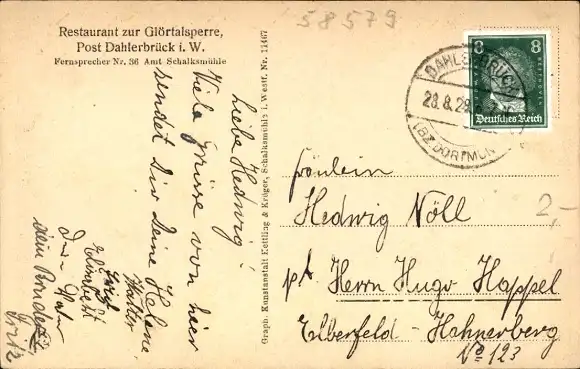 58579
Restaurant zur Glörtalsperre,
Post Dahlerbrück i. W.
Fernsprecher Nr. 36 Amt Schalksmühle
Liebe Hedwig!
Viele Grüsse von hier
sendet Dir Deine Helene
Walter
Elisabeth
dein Bruder
Fritz
Graph. Kunstanstalt Kettling & Krüger, Schalksmühle i. Westf. Nr. 17467
8 8
Deutsches Reich
DAHLERBRÜCK
28.8.28
(BZ DORTMUND)
Fräulein
Hedwig Nöll
2,-
Herrn Hugo Happel
Elberfeld-Hahnerberg
No 123